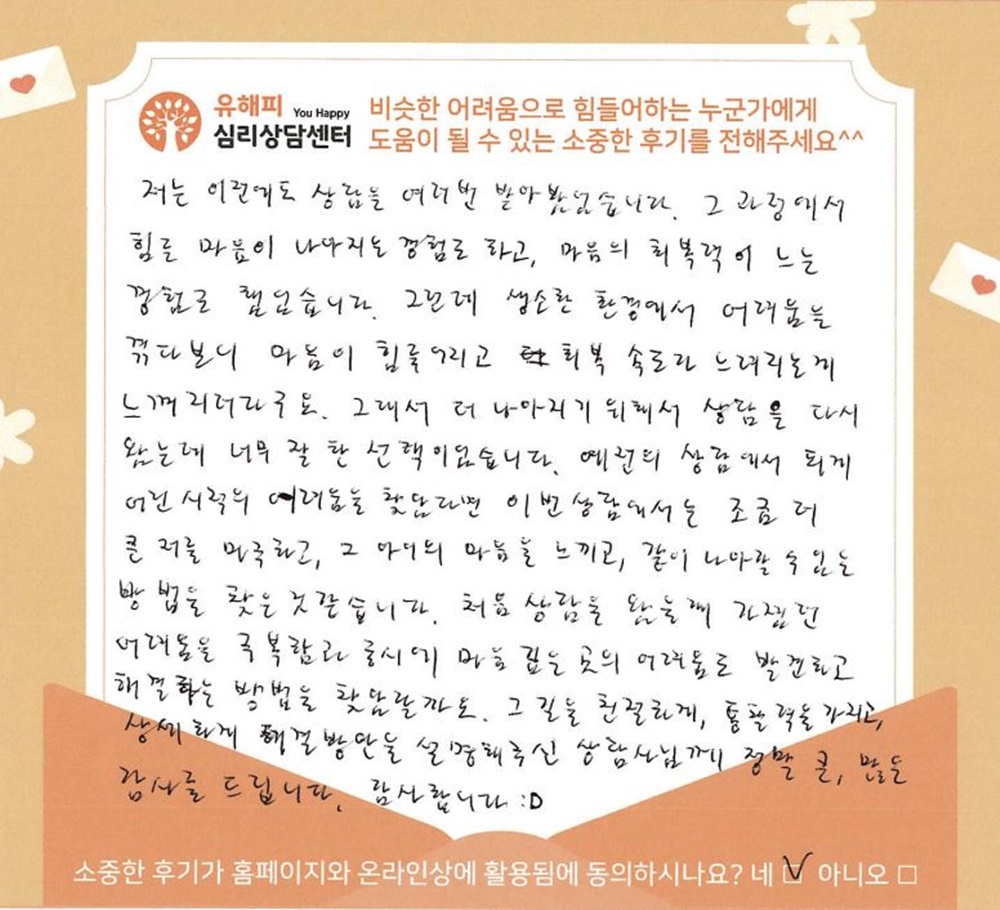 유해피 You Happy
심리상담센터
비슷한 어려움으로 힘들어하는 누군가에게
도움이 될 수 있는 소중한 후기를 전해주세요^^
저는 이전에도 상담을 여러번 받아봤었습니다. 그 과정에서
힘든 마음이 나아지는 경험도 하고, 마음의 회복력이 느는
경험도 했었습니다. 그런데 생소한 환경에서 어려움을
겪다보니 마음이 힘들어지고 회복 속도가 느려지는게
느껴지더라구요. 그래서 더 나아지기 위해서 상담을 다시
왔는데 너무 잘 한 선택이었습니다. 예전의 상담에서 되게
어린시절의 어려움을 찾았다면 이번상담에서는 조금 더
큰 저를 마주하고, 그 아이의 마음을 느끼고, 같이 나아갈 수 있는
방법을 찾은것같습니다. 처음 상담을 왔을때 가졌던
어려움을 극복함과 동시에 마음 깊은 곳의 어려움도 발견하고
해결하는 방법을 찾았달까요. 그 길을 친절하게, 통찰력을 가지고,
상세하게 해결방안을 설명해주신 상담사님께 정말 큰, 많은
감사를 드립니다. 감사합니다 :D
소중한 후기가 홈페이지와 온라인상에 활용됨에 동의하시나요? 네 ☑ 아니오 □